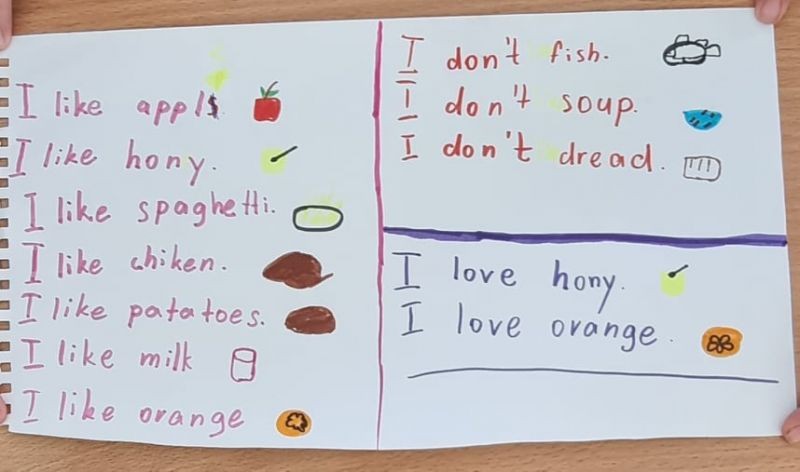 I like appls
I like hony.
I like spaghetti.
I like chiken.
I like patatoes.
I like milk
I like orange
I don't fish.
I don't soup.
I don't dread.
I love hony.
I love orange.